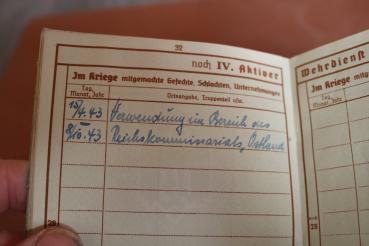 32
noch IV. Aktiver
Wehrdienst
Im Kriege mitgemachte Gefechte, Schlachten, Unternehmungen
Im Kriege mi
Tag, Monat, Jahr
Ortsangabe, Truppenteil usw.
Tag, Monat, Jahr
15/4.43 Verwendung im Bereich des
–
8/10.43 Reichskommissariats, Ostland
28
28